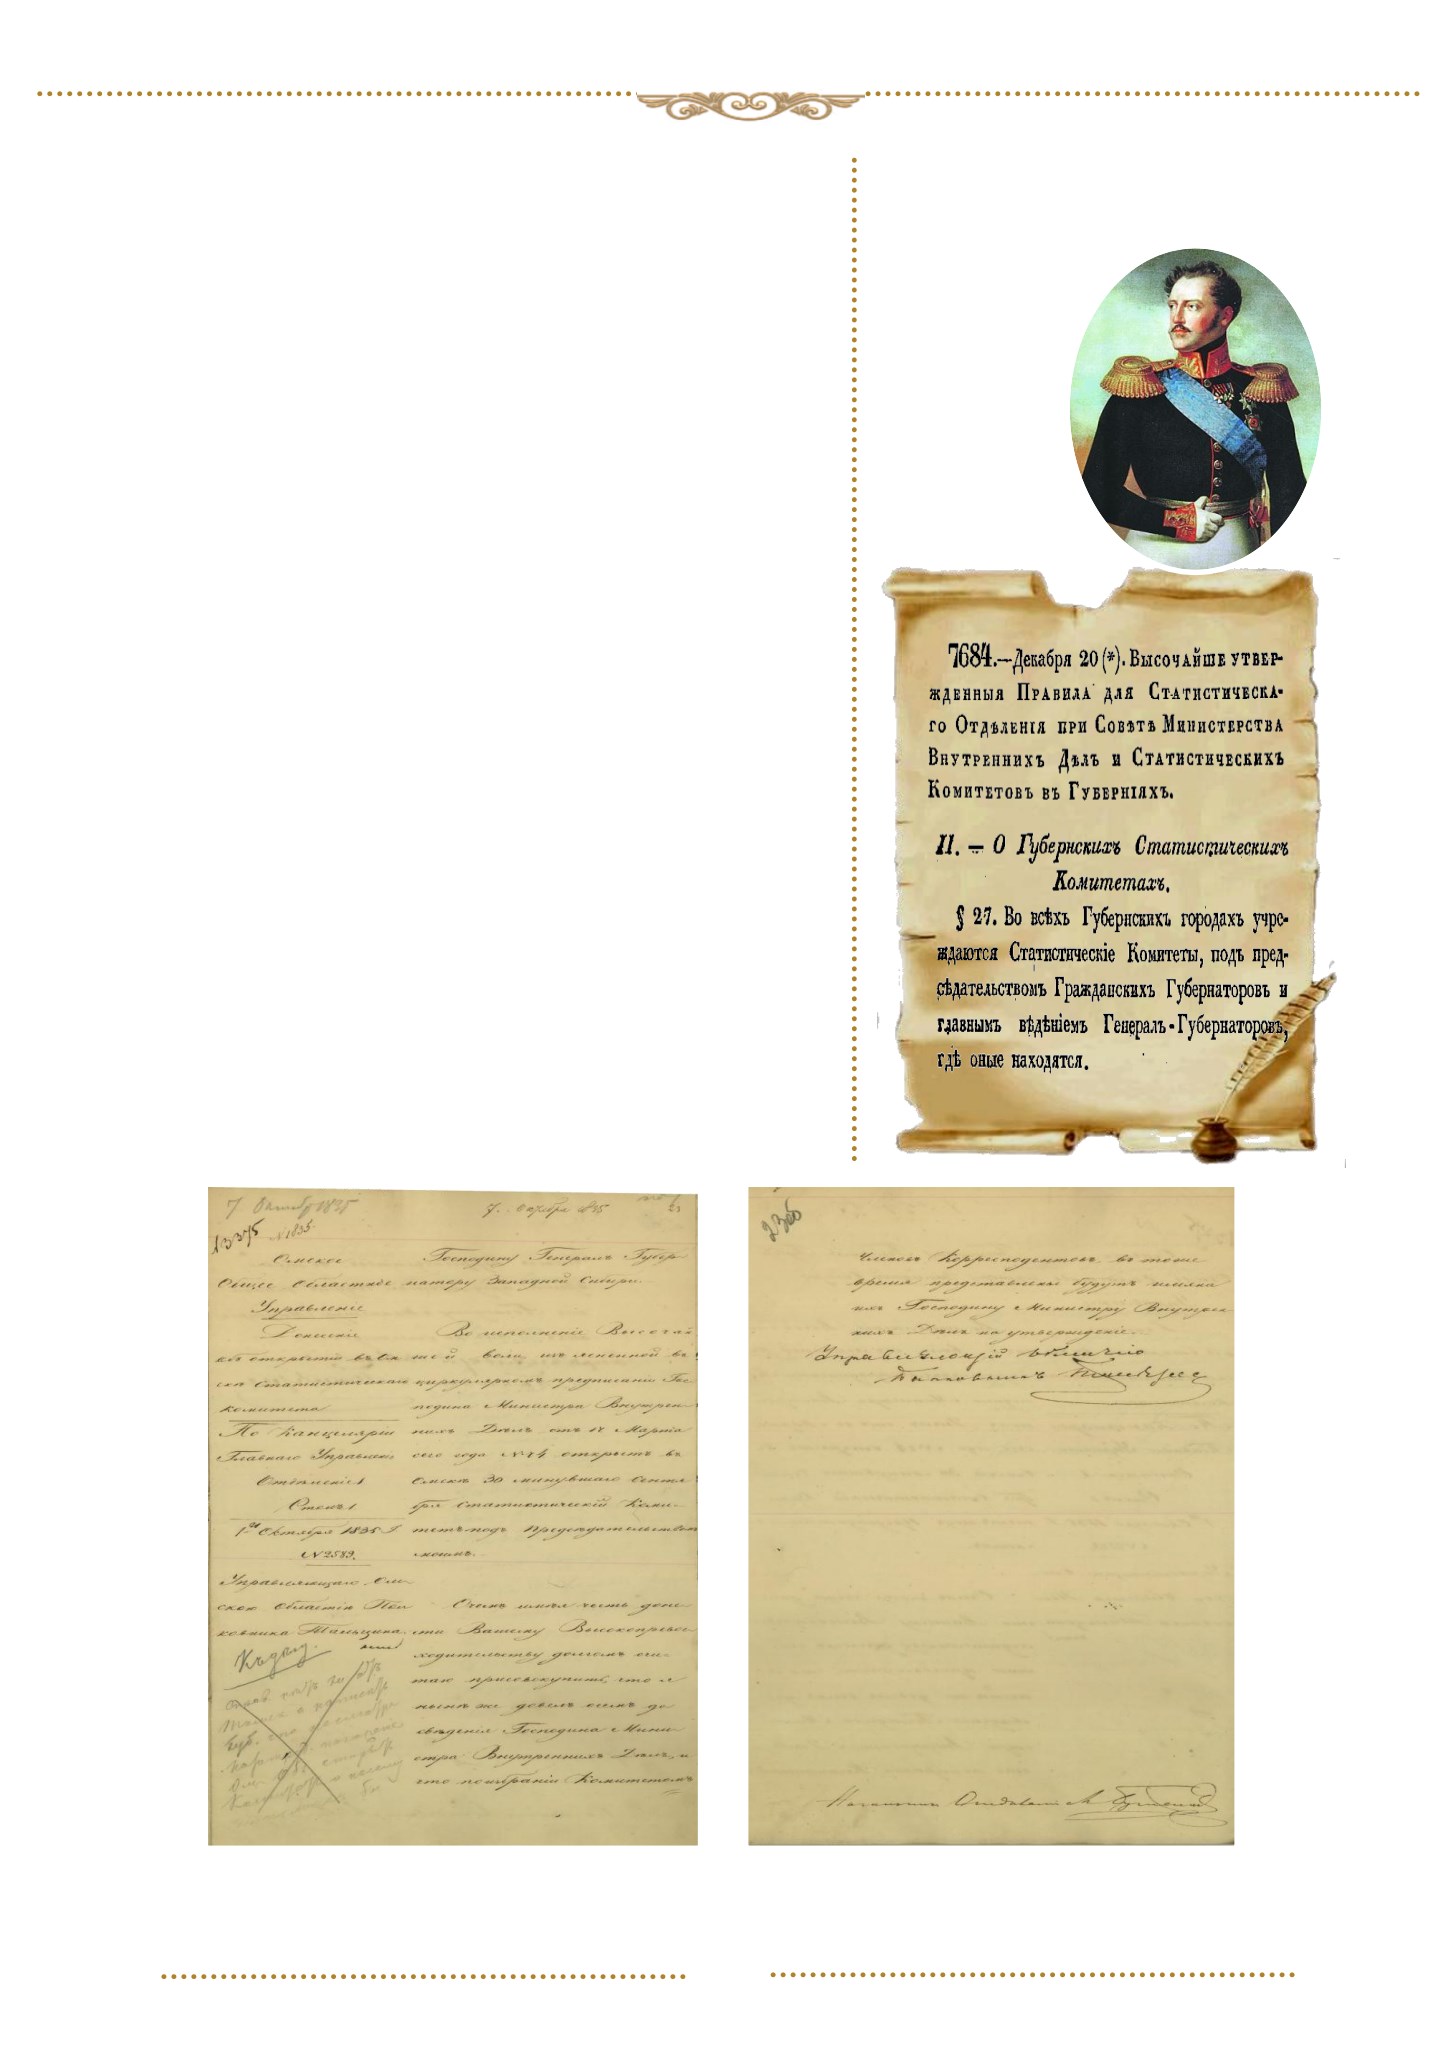 7684.—Декабря 20 (*). Высочайше утвер-
жденныя Правила для Статистическа-
го Отдѣленія при Совѣтѣ Министерства
Внутреннихъ Дѣлъ и Статистическихъ
Комитетовъ въ Губерніяхъ.
II. — О Губернскихъ Статистическихъ
Комитетахъ.
§ 27. Во всѣхъ Губернскихъ городахъ учре-
ждаются Статистическіе Комитеты, подъ пред-
сѣдательствомъ Гражданскихъ Губернаторовъ и
главнымъ вѣдѣніемъ Генералъ-Губернаторовъ,
гдѣ оные находятся.
7. Октября 1835
7. октября 1835
13375
№ 1835.
Омское
Общее Областное
Управленіе
Донесеніе
объ открытіи въ Ом
скѣ Статистическаго
комитета
По Канцеляріи
Главнаго Управленія
Отдѣленіе 1
Столъ 1
1го Октября 1835 г
№ 2589.
Управляющаго Ом
ской Областію Пол
ковника Талызина.
Къ дѣлу.
Господину Генералъ Губер
натору Западной Сибири.
Во исполненіе Высочай
шей воли, изъясненной въ
циркулярномъ предписаніи Гос
подина Министра Внутрен
нихъ Дѣлъ отъ 17 Марта
сего года № 74 открытъ въ
Омскѣ 30 минувшаго Сентя
бря статистическій Коми
тетъ подъ Предсѣдательствомъ
моимъ.
О чемъ имѣя честь доне
сти Вашему Высокопревос
ходительству долгомъ счи
таю присовокупить, что я
нынѣ же довелъ о семъ до
свѣденія Господина Мини
стра Внутреннихъ Дѣлъ, и
что по избраніи Комитетомъ
23об
Членовъ Корреспондентовъ въ тоже
время представлены будутъ имена
ихъ Господину Министру Внутрен
нихъ Дѣлъ на утвержденіе.
Управляющій областію
Полковникъ Талызинъ
Начальникъ Отдѣленія